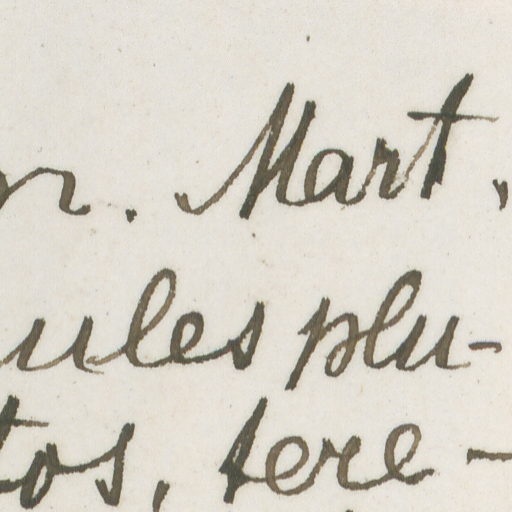 r. Mart.,
ules plu-
tos, tere-